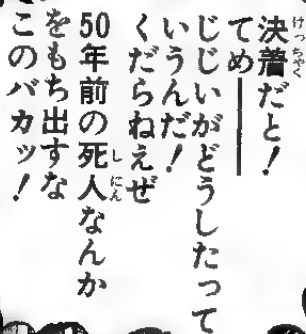 決着だと！
てめ━━
じじいがどうしたって
いうんだ！
くだらねえぜ
50年前の死人なんか
をもち出すな
このバカッ！